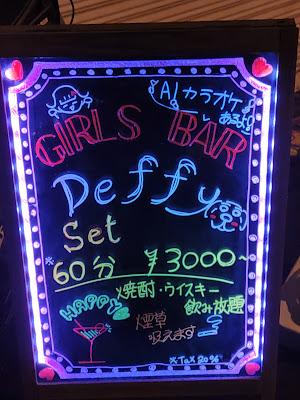 AIカラオケ
あるよ♪
GIRLS BAR
Deffy
Set
※60分 ¥3000~
焼酎・ウイスキー
飲み放題
HAPPY
煙草
吸えます
※Tax20%